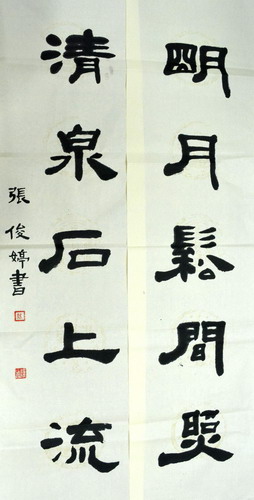 明月鬆間照
清泉石上流
張俊婷書